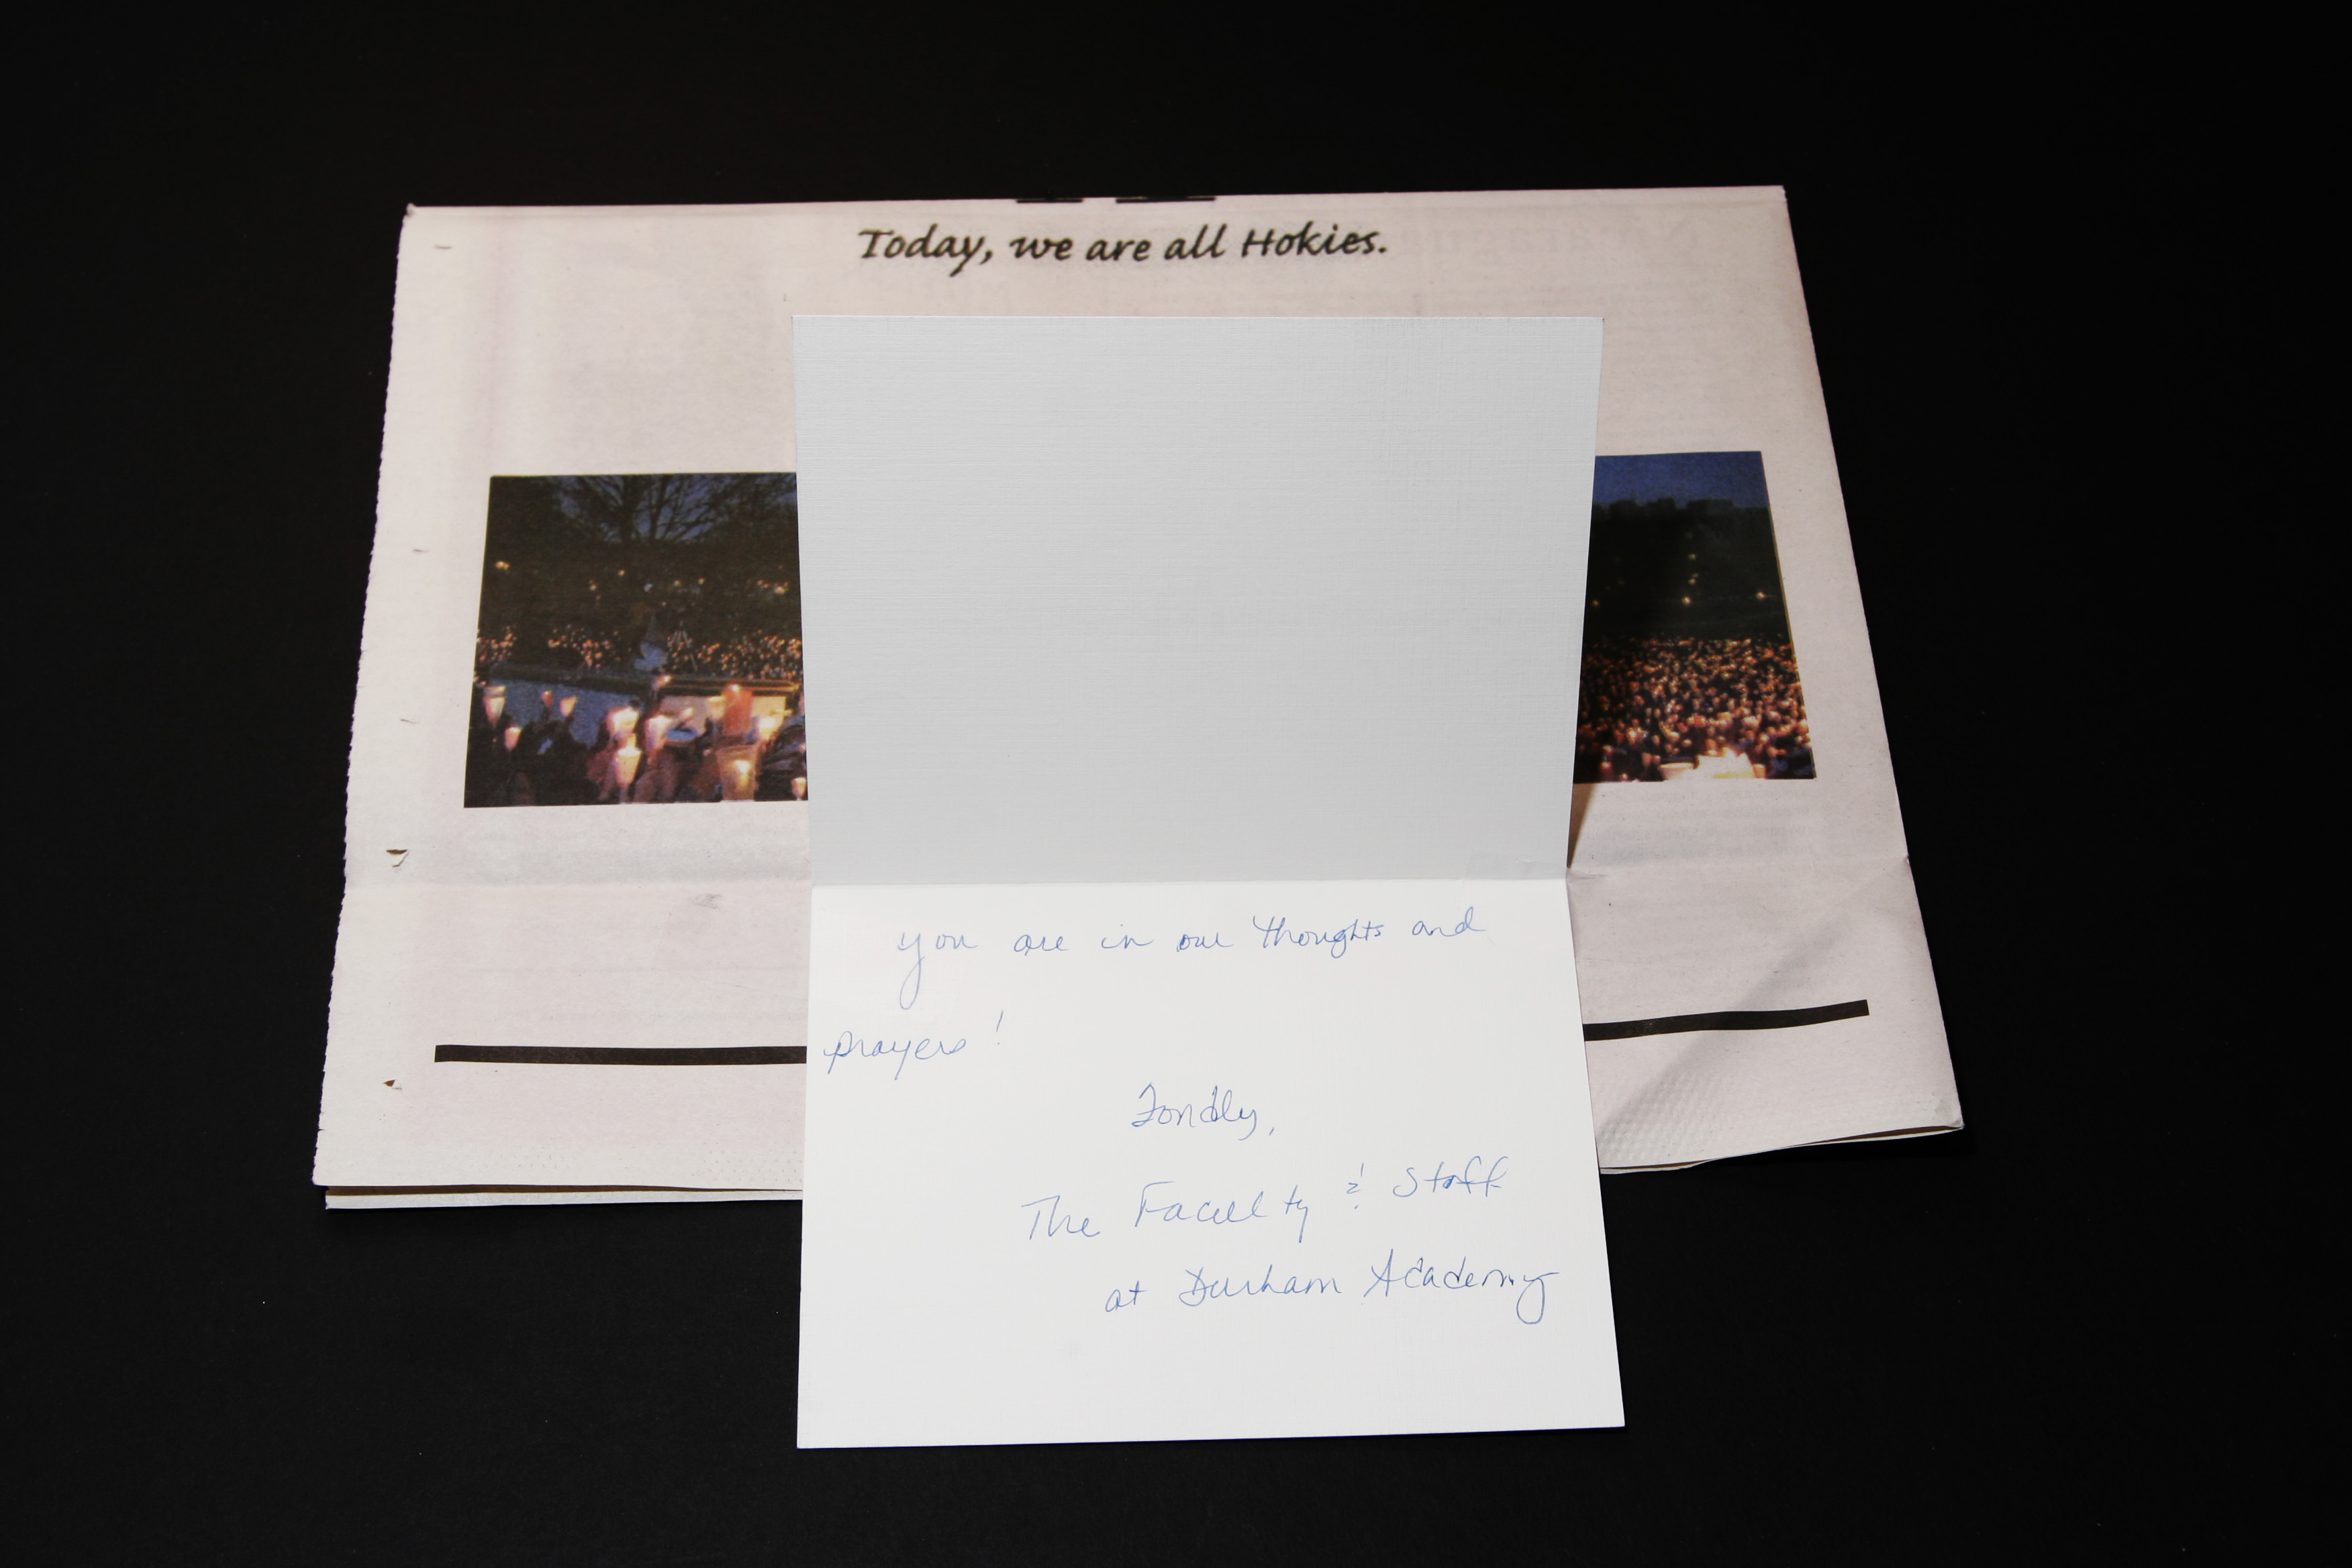 Today, we are all Hokies.
you are in our thoughts and
prayers!
Fondly,
The Faculty & Staff
at Durham Academy